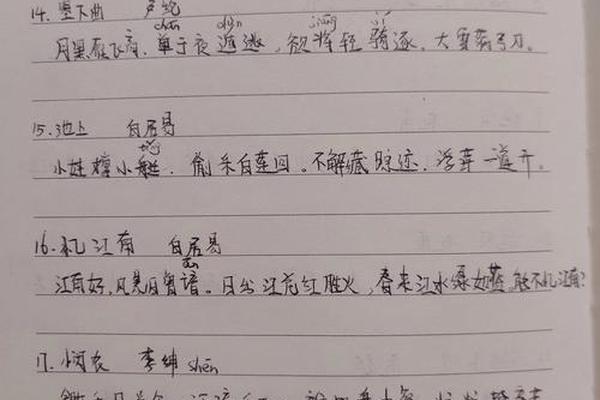 14. 塞下曲 卢纶
chán dùn jiāng jì
月黑雁飞高，单于夜遁逃，欲将轻骑逐，大雪满弓刀。
15. 池上 白居易
小娃撑小艇，偷采白莲回。不解藏踪迹，浮萍一道开。
16. 忆江南 白居易
江南好，风景旧曾谙。日出江花红胜火，春来江水绿如蓝，能不忆江南？
17. 悯农 李绅 shēn